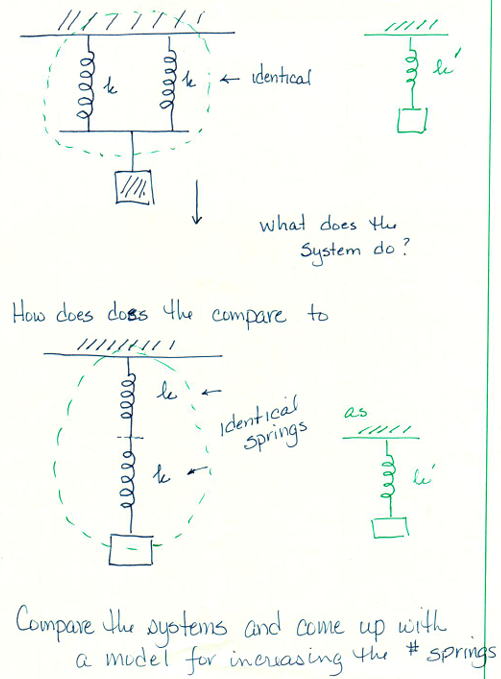 k
k
← identical
k'
What does the
System do?
How does does the compare to
k
identical
springs
k
as
k'
Compare the systems and come up with
a model for increasing the # springs